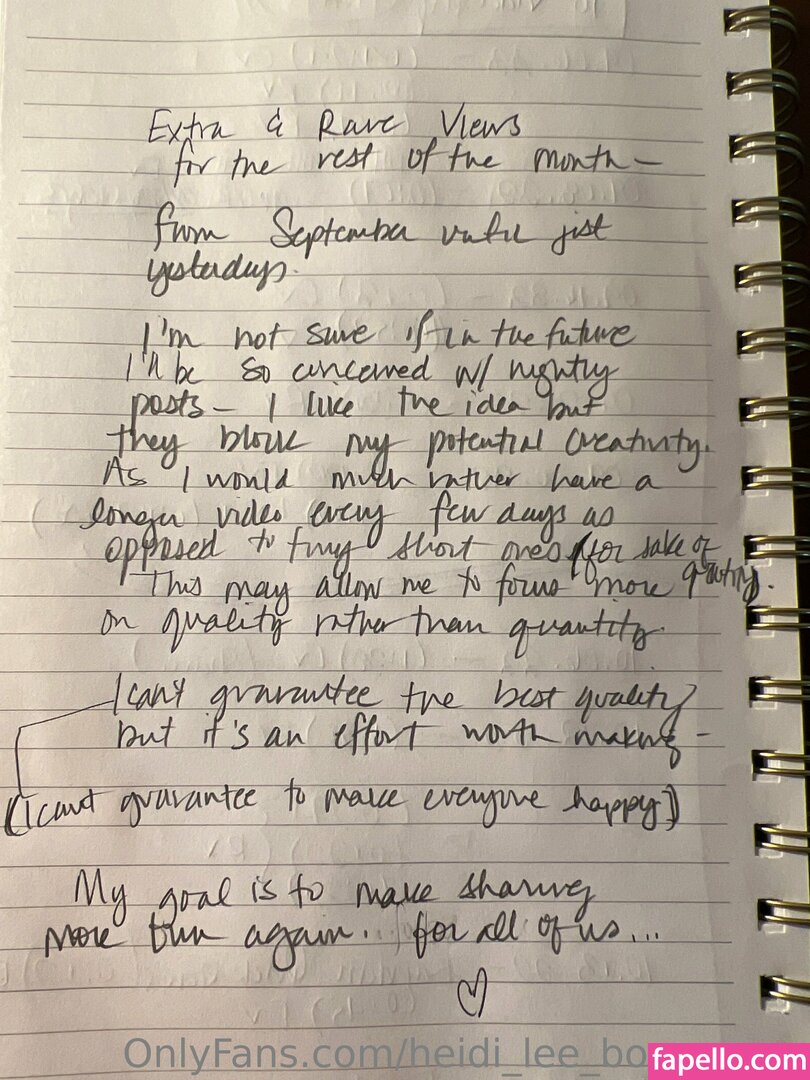 Extra & Rare Views
for the rest of the month —
from September until just
yesterday.
I'm not sure if in the future
I'll be so concerned w/ nightly
posts — I like the idea but
they block my potential creativity.
As I would much rather have a
longer video every few days as
opposed to tiny short ones for sake of
quantity.
This may allow me to focus more
on quality rather than quantity.
I can't guarantee the best quality
but it's an effort worth making —
(I can't guarantee to make everyone happy)
My goal is to make sharing
more fun again.. for all of us...
OnlyFans.com/heidi_lee_bo
fapello.com